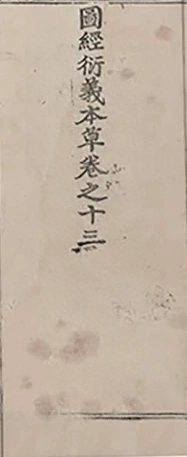 圖經衍義本草卷之十三